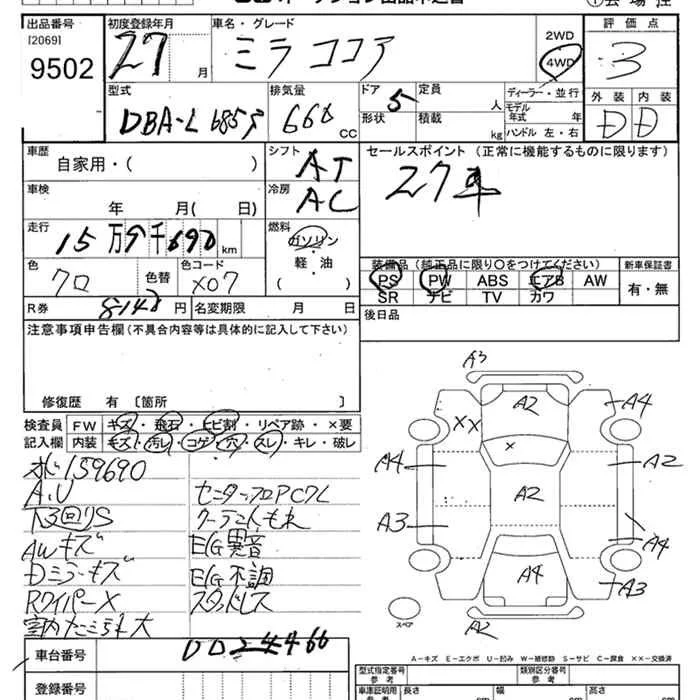 出品番号 初度登録年月 車名・グレード 2WD 評価点
[2069] 9502 27 月 ミラ ココア 4WD 3
型式 排気量 ドア 5 定員 人 ディーラー・並行 外装 内装
DBA-L685S 660 CC 形状 積載 kg モデル年式 年 ハンドル 左・右 D D
車歴 自家用・( ) シフト AT セールスポイント (正常に機能するものに限ります)
車検 年 月( 日) 冷房 AC 27車
走行 15万9千690km 燃料 ガソリン
軽・油
( )
色 クロ 色替 色コード X07
装備品 (純正品に限り○をつけてください) 新車保証書
PS PW ABS エアB AW 有・無
SR ナビ TV カワ
R券 8140円 名変期限 月 日 後日品
注意事項申告欄 (不具合内容等は具体的に記入して下さい)
修復歴 有 [箇所 ]
検査員 FW キズ・飛石・ヒビ割・リペア跡・×要
記入欄 内装 キズ・汚レ・コゲ・穴・スレ・キレ・破レ
159690
A.U センタッフロPCワレ
下3回リS クーラーこんもれ
AWキズ E/G異音
Dミラーキズ E/G不調
RワイパーX スタッドレス
室内
A3
A2 A4
XX
X
A4 A2 A2
A3 A4
A4 A3
A2
スペア
A-キズ E-エクボ U-凹み W-補修跡 S-サビ C-腐食 ××-交換済
車台番号 0024466
登録番号
型式指定番号 参考 類別区分番号 参考
車庫証明用 参考 長さ cm 幅 cm 高さ cm